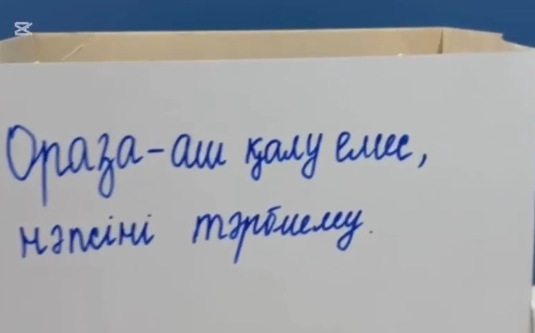 Ораза-аш қалу емес,
нәпсіні тәрбиелеу.